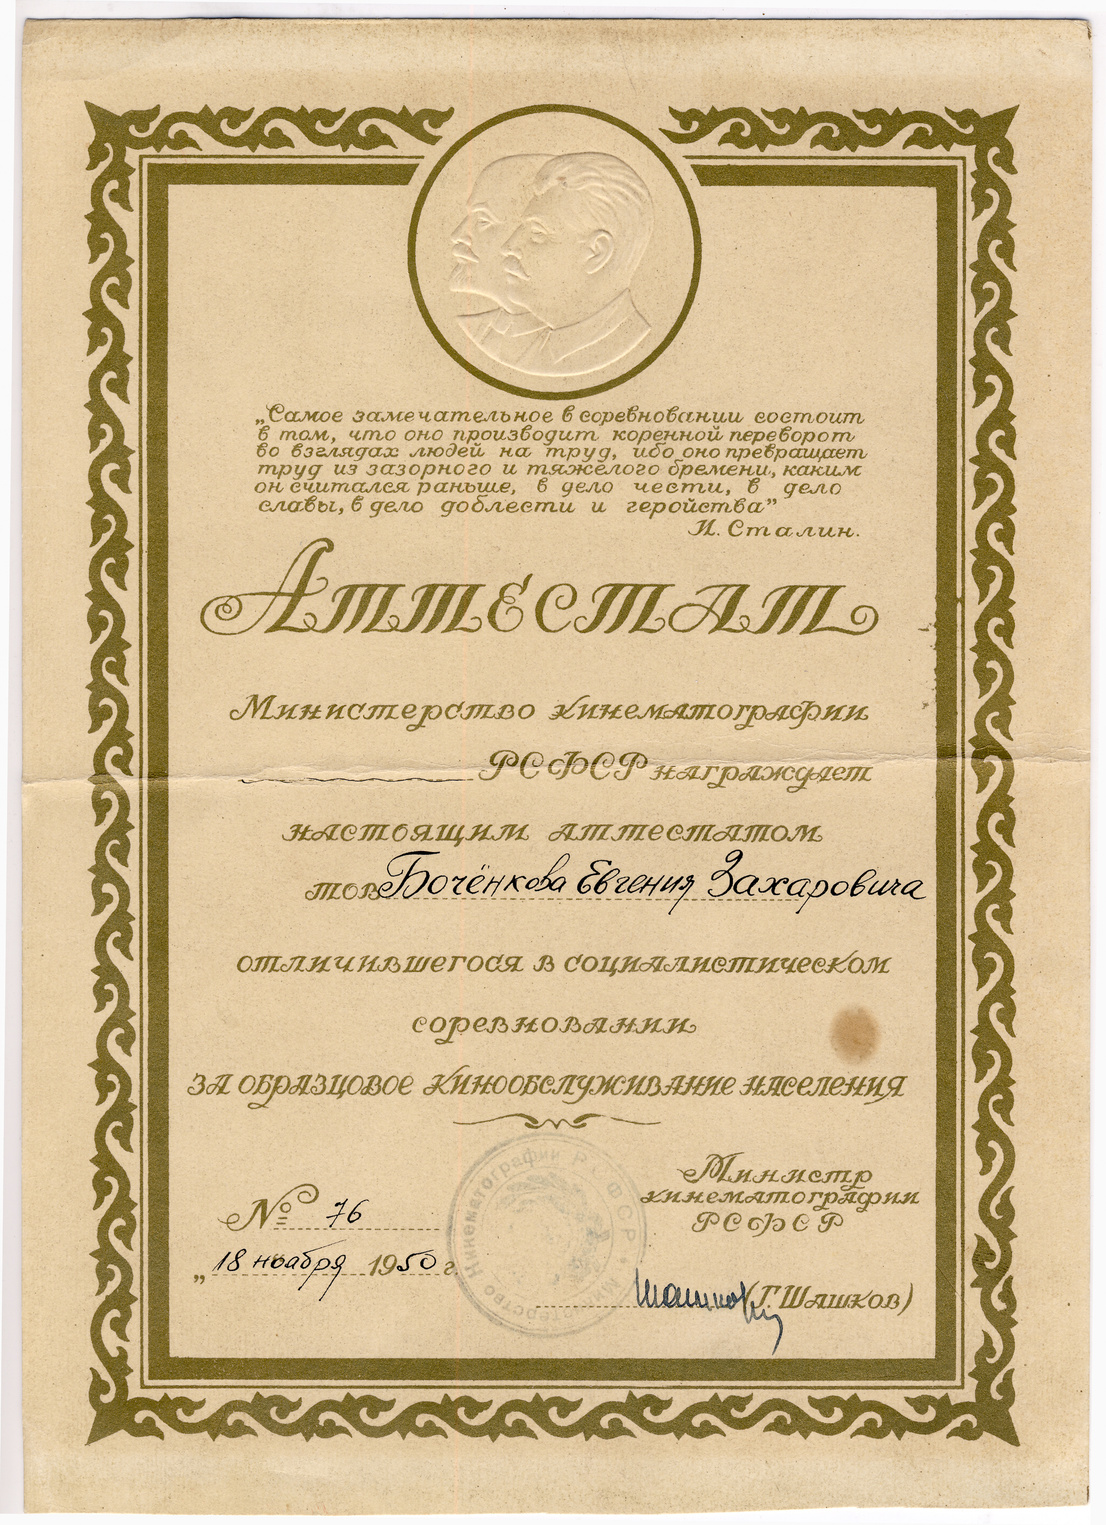 „Самое замечательное в соревновании состоит
в том, что оно производит коренной переворот
во взглядах людей на труд, ибо оно превращает
труд из зазорного и тяжёлого бремени, каким
он считался раньше, в дело чести, в дело
славы, в дело доблести и геройства”
И. Сталин.
Аттестат
Министерство кинематографии
РСФСР награждает
настоящим аттестатом
тов. Бочёнкова Евгения Захаровича
отличившегося в социалистическом
соревновании
за образцовое кинообслуживание населения
Министр
кинематографии
РСФСР
№ 76
„18 ноября 1950 г.
Шашков (Г. Шашков)
Министерство Кинематографии РСФСР